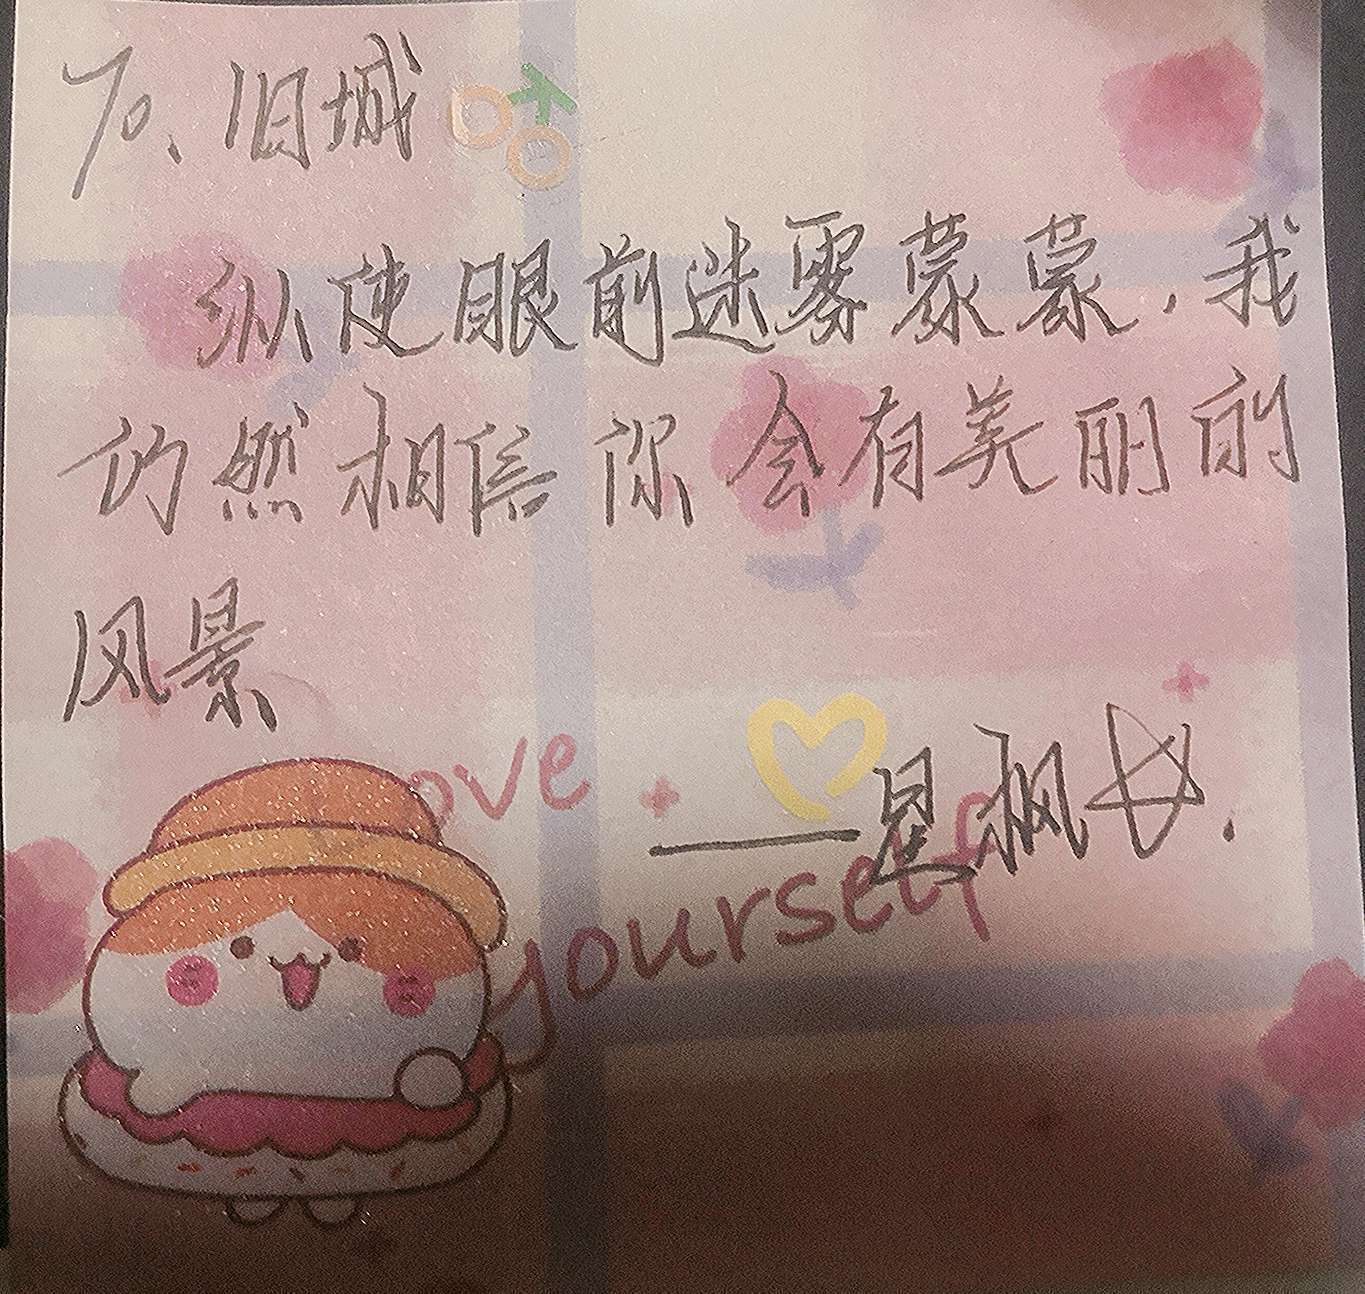 To、旧城
纵使眼前迷雾蒙蒙，我
仍然相信你会有美丽的
风景
love
——星枫
yourself